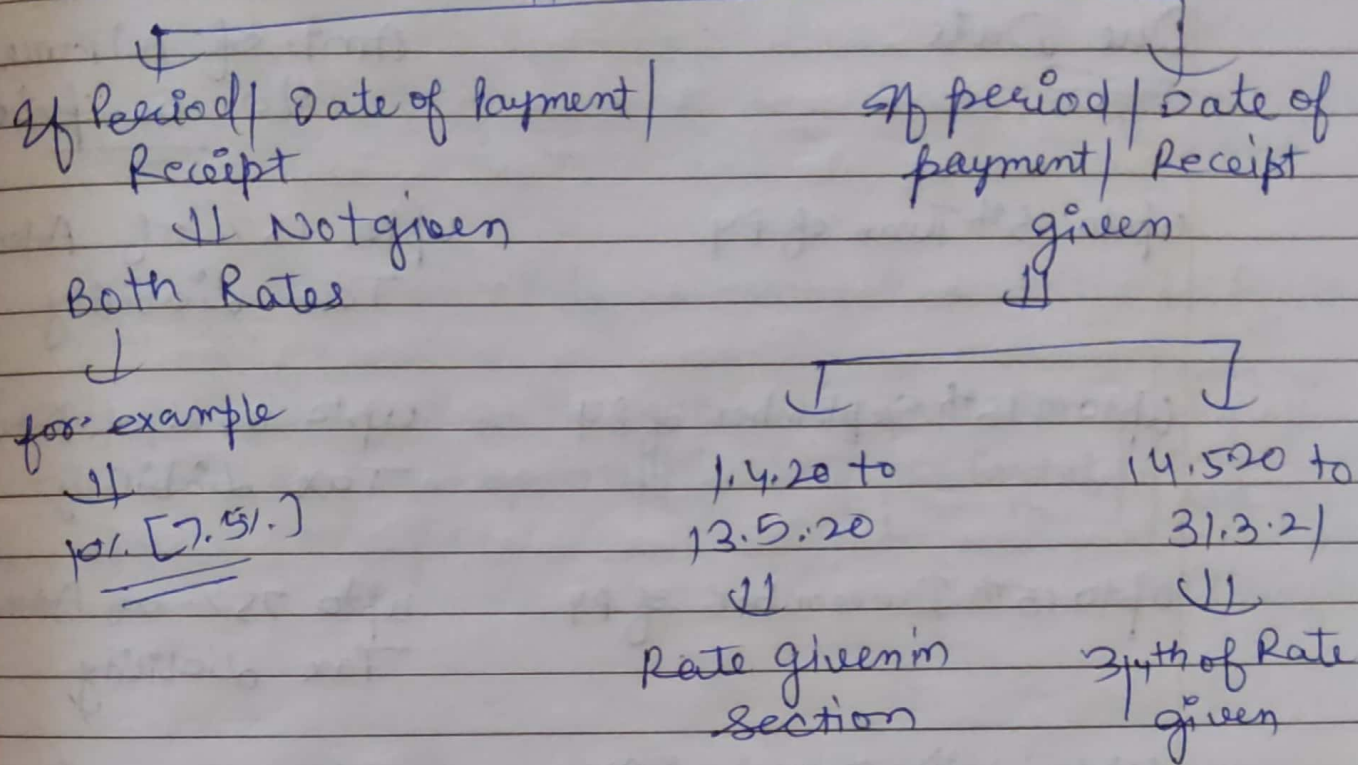 If Period/ Date of Payment/
Receipt
Not given
Both Rates
for example
10%. [7.5%.]
If period/ Date of
payment/ Receipt
given
1.4.20 to
13.5.20
Rate given in
section
14.5.20 to
31.3.21
3/4th of Rate
given